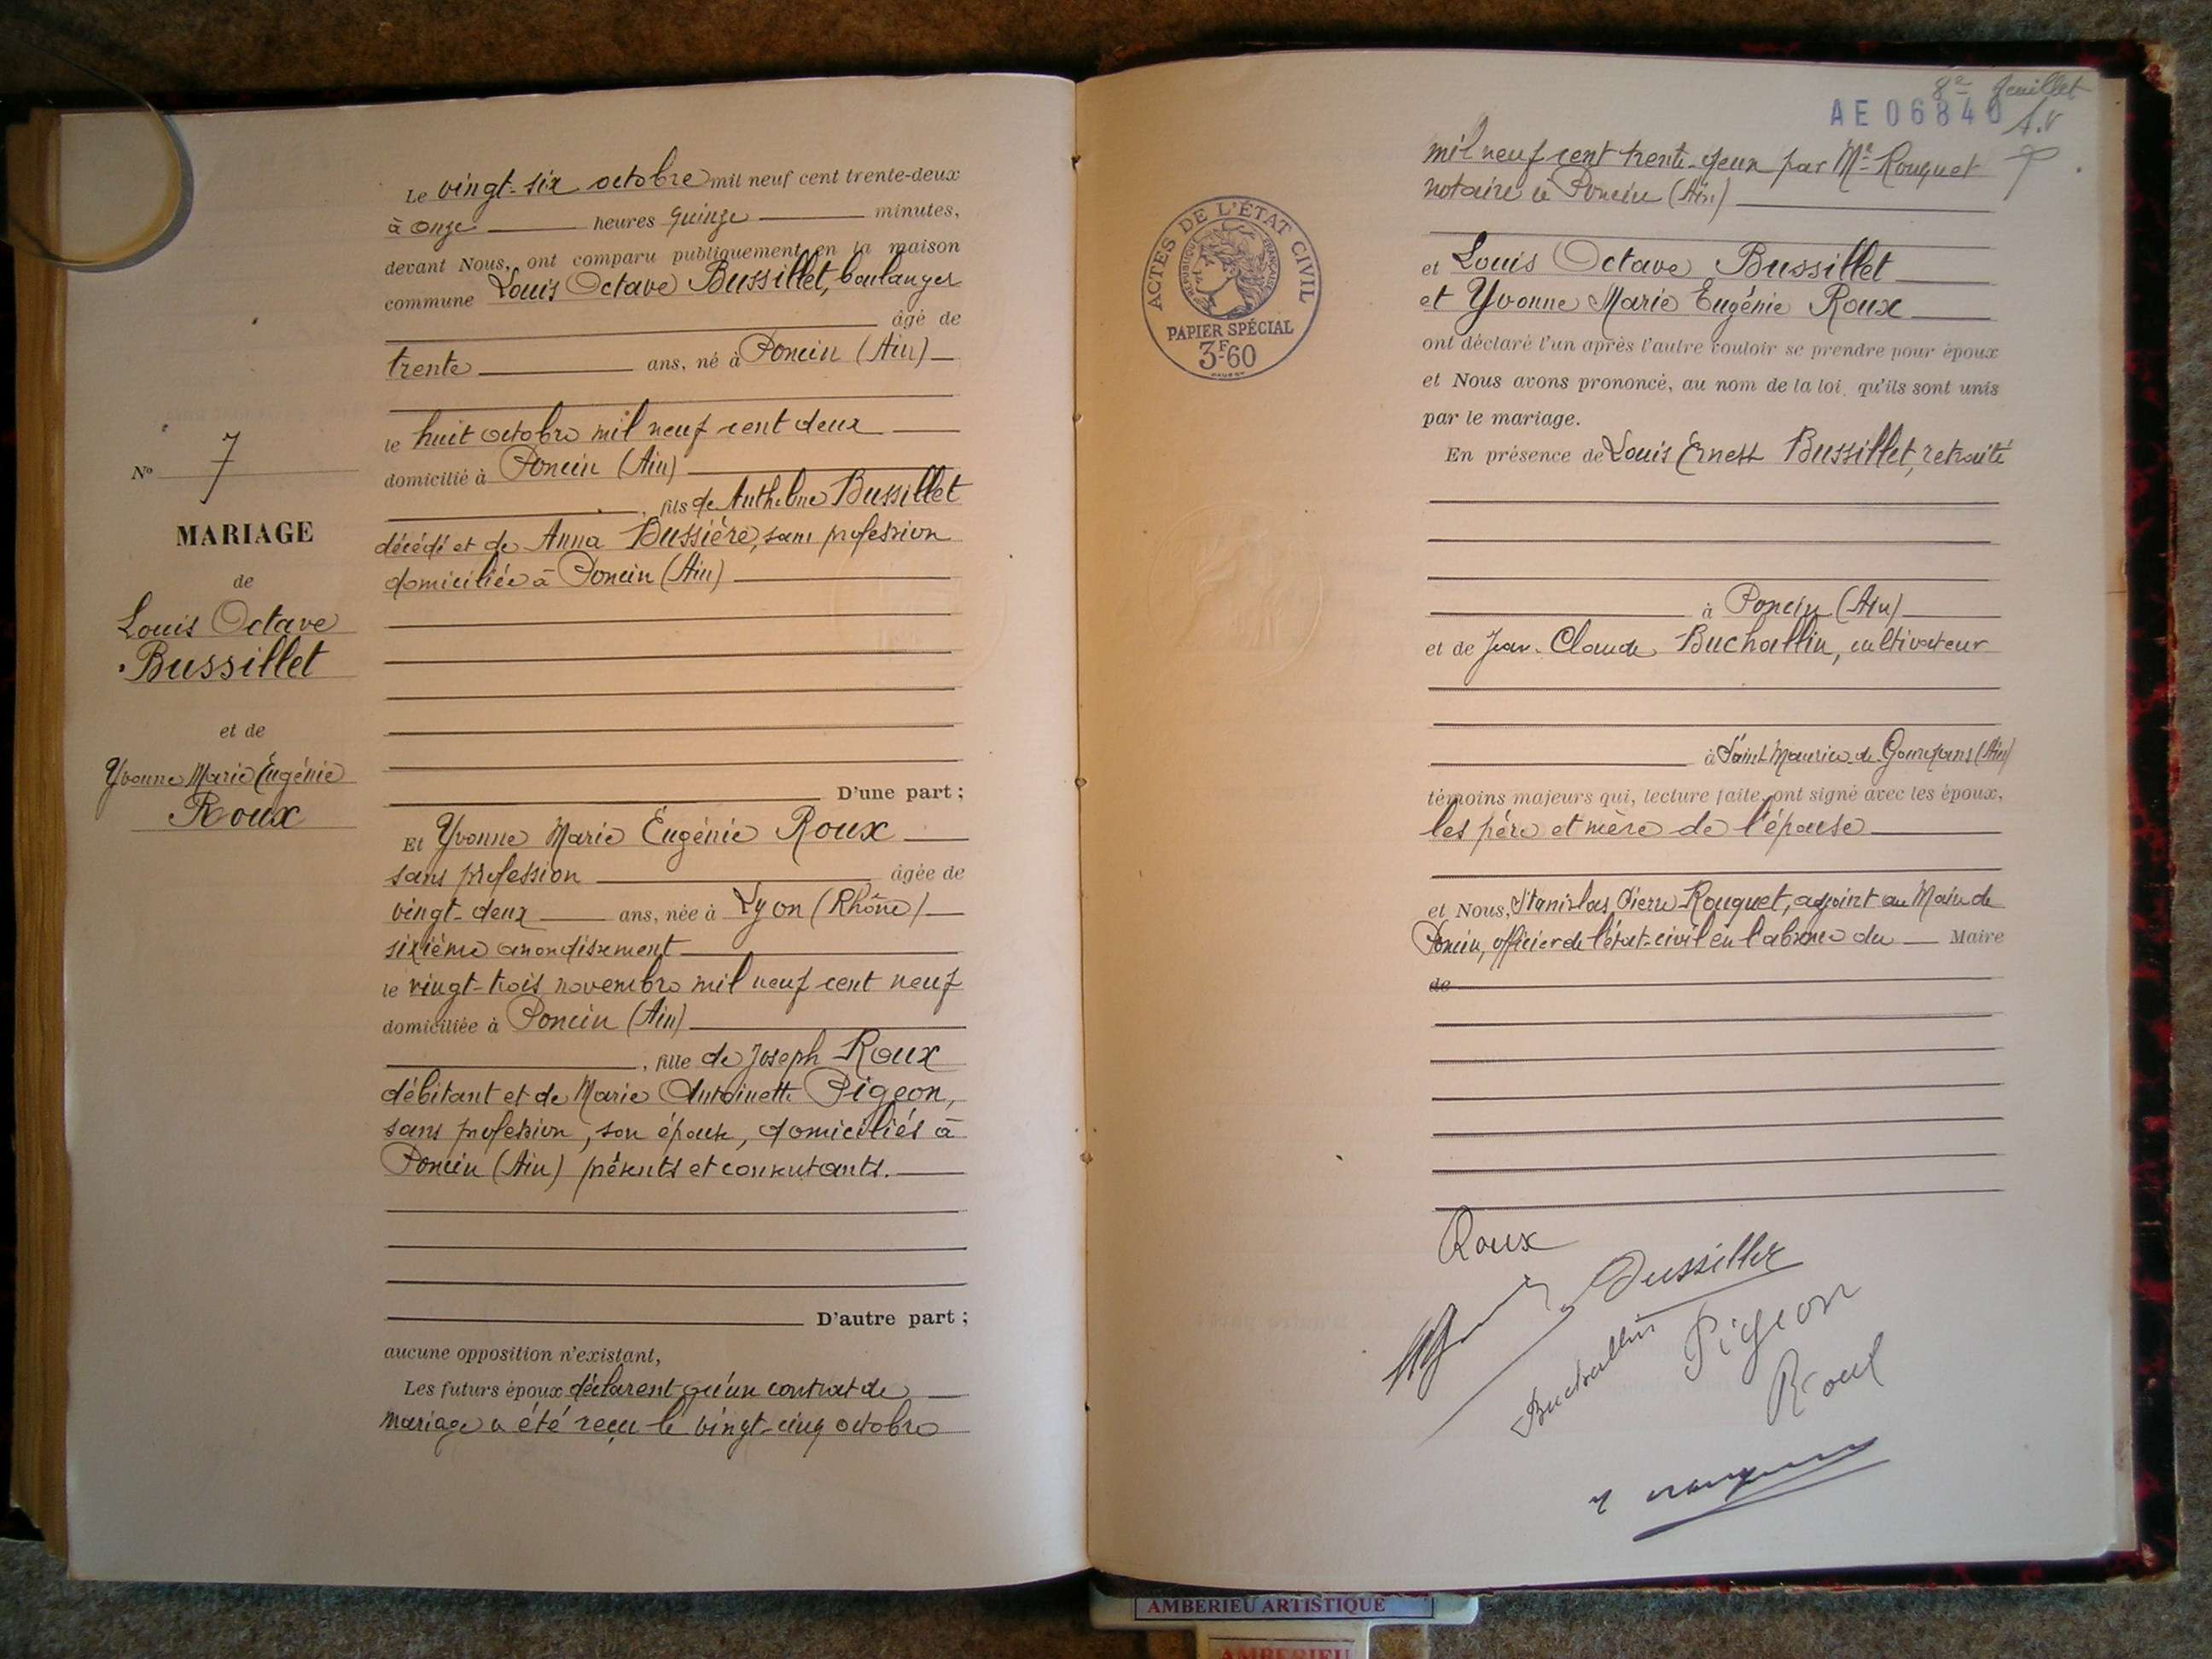 Le vingt-six octobre mil neuf cent trente-deux
à onze heures quinze minutes,
devant Nous, ont comparu publiquement en la maison
commune Louis Octave Bussillet, boulanger
âgé de
trente ans, né à Poncin (Ain)
le huit octobre mil neuf cent deux
domicilié à Poncin (Ain)
, fils de Anthelme Bussillet
décédé et de Anna Bussière, sans profession
domiciliée à Poncin (Ain)
D'une part ;
Nº 7
MARIAGE
de
Louis Octave
Bussillet
et de
Yvonne Marie Eugénie
Roux
Et Yvonne Marie Eugénie Roux
sans profession âgée de
vingt-deux ans, née à Lyon (Rhône)
sixième arrondissement
le vingt-trois novembre mil neuf cent neuf
domiciliée à Poncin (Ain)
, fille de Joseph Roux
débitant et de Marie Antoinette Pigeon,
sans profession, son épouse, domiciliés à
Poncin (Ain) présents et consentants.
D'autre part ;
aucune opposition n'existant,
Les futurs époux déclarent qu'un contrat de
mariage a été reçu le vingt-cinq octobre
8e feuillet
AE 06840
mil neuf cent trente-deux par Me Rouquet
notaire à Poncin (Ain)
ACTES DE L'ÉTAT CIVIL
RÉPUBLIQUE FRANÇAISE
PAPIER SPÉCIAL
3F60
et Louis Octave Bussillet
et Yvonne Marie Eugénie Roux
ont déclaré l'un après l'autre vouloir se prendre pour époux
et Nous avons prononcé, au nom de la loi, qu'ils sont unis
par le mariage.
En présence de Louis Ernest Bussillet, retraité
à Poncin (Ain)
et de Jean-Claude Buchallin, cultivateur
à Saint Maurice-de-Gourdans (Ain)
témoins majeurs qui, lecture faite, ont signé avec les époux,
les père et mère de l'épouse
et Nous, Stanislas Pierre Rouquet, adjoint au Maire de
Poncin, officier de l'état-civil en l'absence du Maire
de
Roux
Bussillet
Buchallin
Pigeon
Roux
AMBERIEU ARTISTIQUE
AMBERIEU